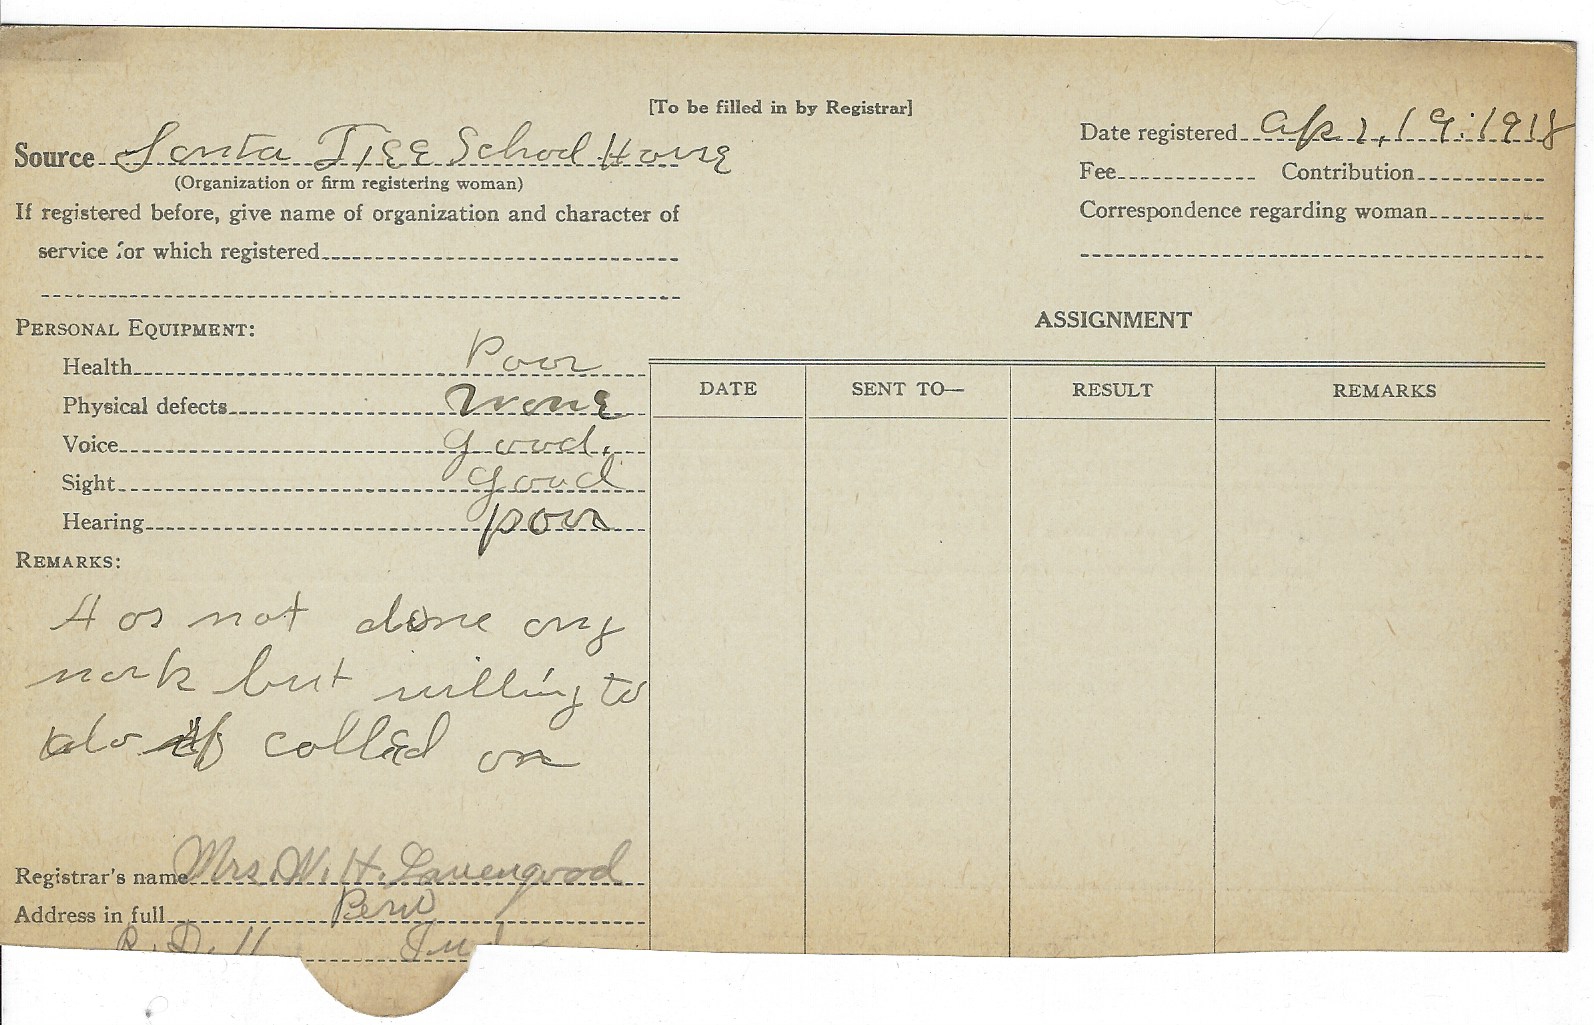 [To be filled in by Registrar]
Source Santa Fee School House
(Organization or firm registering woman)
Date registered Apr, 19:1918
Fee Contribution
If registered before, give name of organization and character of
service for which registered
Correspondence regarding woman
PERSONAL EQUIPMENT:
Health Poor
Physical defects None
Voice good.
Sight good
Hearing poor
REMARKS:
Has not done any
work but willing to
do if called on
Registrar's name Mrs. W. H.
Address in full Peru
R. D. 11 Ind
ASSIGNMENT
DATE SENT TO— RESULT REMARKS